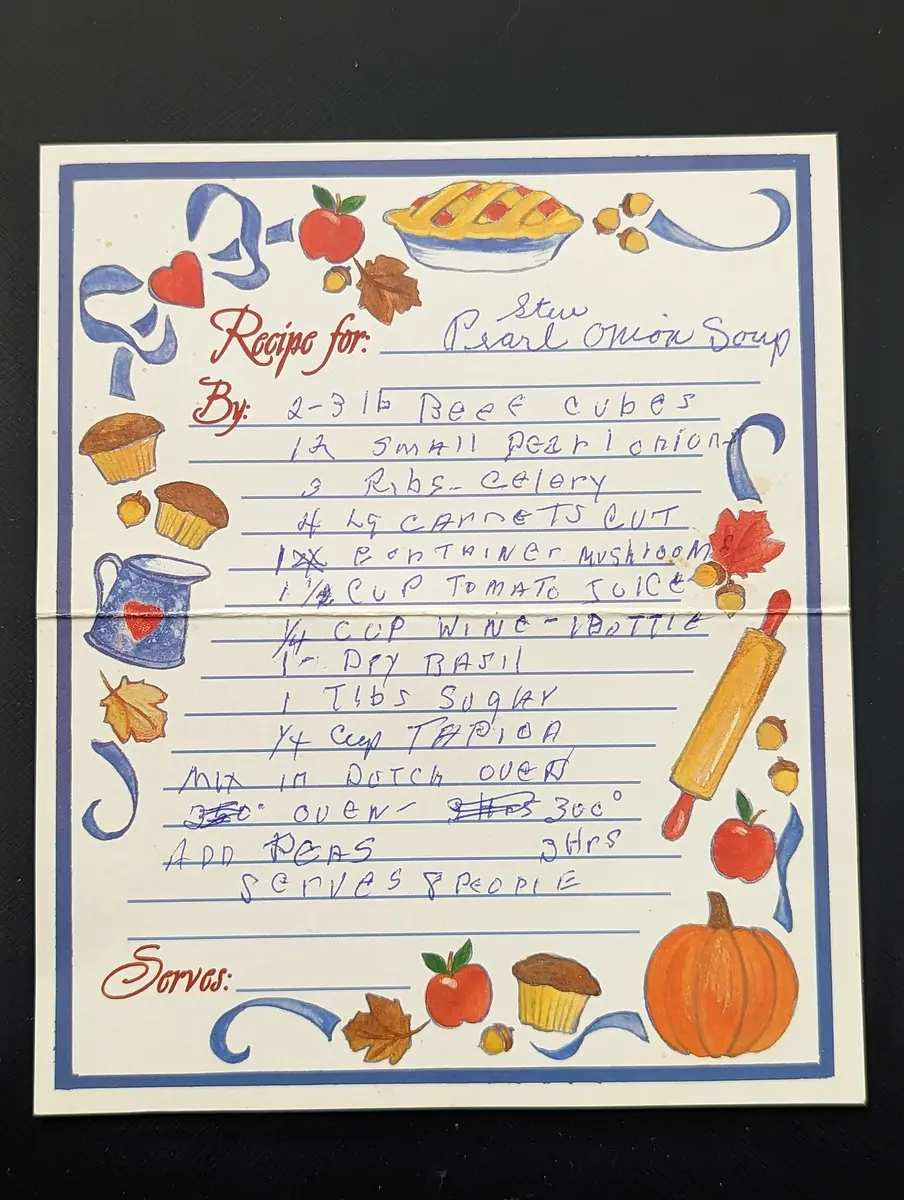 Stew
Recipe for: Pearl Onion Soup
By: 2-3 lb BEEF CUBES
12 SMAll PEarl onions
3 Ribs- CElEry
4 LG CARrETS CUT
1 CONTAINEr MUSHrOOMS
1 1/2 CUP TOMATO JUICE
1/4 CUP WINE- 1 BOTTlE
1 - DRY BASIl
1 Tlbs SUgAr
1/4 Cup TAPIOA
MIX IN DUTCH OVEN
350° OVEN- 3 Hrs 300°
ADD PEAS 3 Hrs
SErVES 8 PEOPlE
Serves: